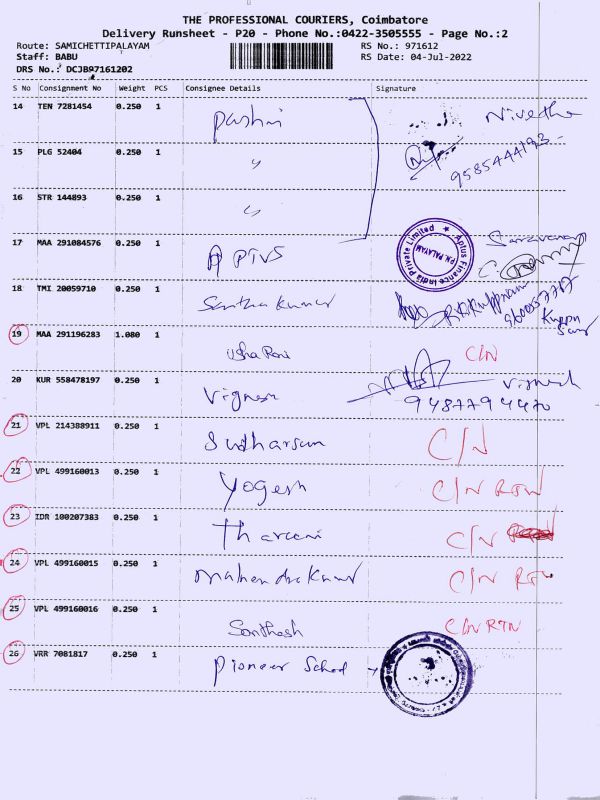 THE PROFESSIONAL COURIERS, Coimbatore
Delivery Runsheet - P20 - Phone No.:0422-3505555 - Page No.:2
Route: SAMICHETTIPALAYAM
RS No.: 971612
Staff: BABU
RS Date: 04-Jul-2022
DRS No.: DCJB97161202
S No Consignment No Weight PCS Consignee Details Signature
14 TEN 7281454 0.250 1 Nivetha
15 PLG 52404 0.250 1 " 9585444193
16 STR 144893 0.250 1 "
17 MAA 291084576 0.250 1 APTUS Saravanan
Aptus Finance India Private Limited
P.N. PALAYAM
18 TMI 20059710 0.250 1 Santha Kumar
19 MAA 291196283 1.080 1 Usha Rani C/N
20 KUR 558478197 0.250 1 Vignesh Vignesh
9487794470
21 VPL 214388911 0.250 1 Sudharsan C/N
22 VPL 499160013 0.250 1 Yogesh C/N RTN
23 IDR 100207383 0.250 1 Tharani C/N
24 VPL 499160015 0.250 1 Mahendra Kumar C/N RTN
25 VPL 499160016 0.250 1 Santhosh C/N RTN
26 VRR 7081817 0.250 1 Pioneer School